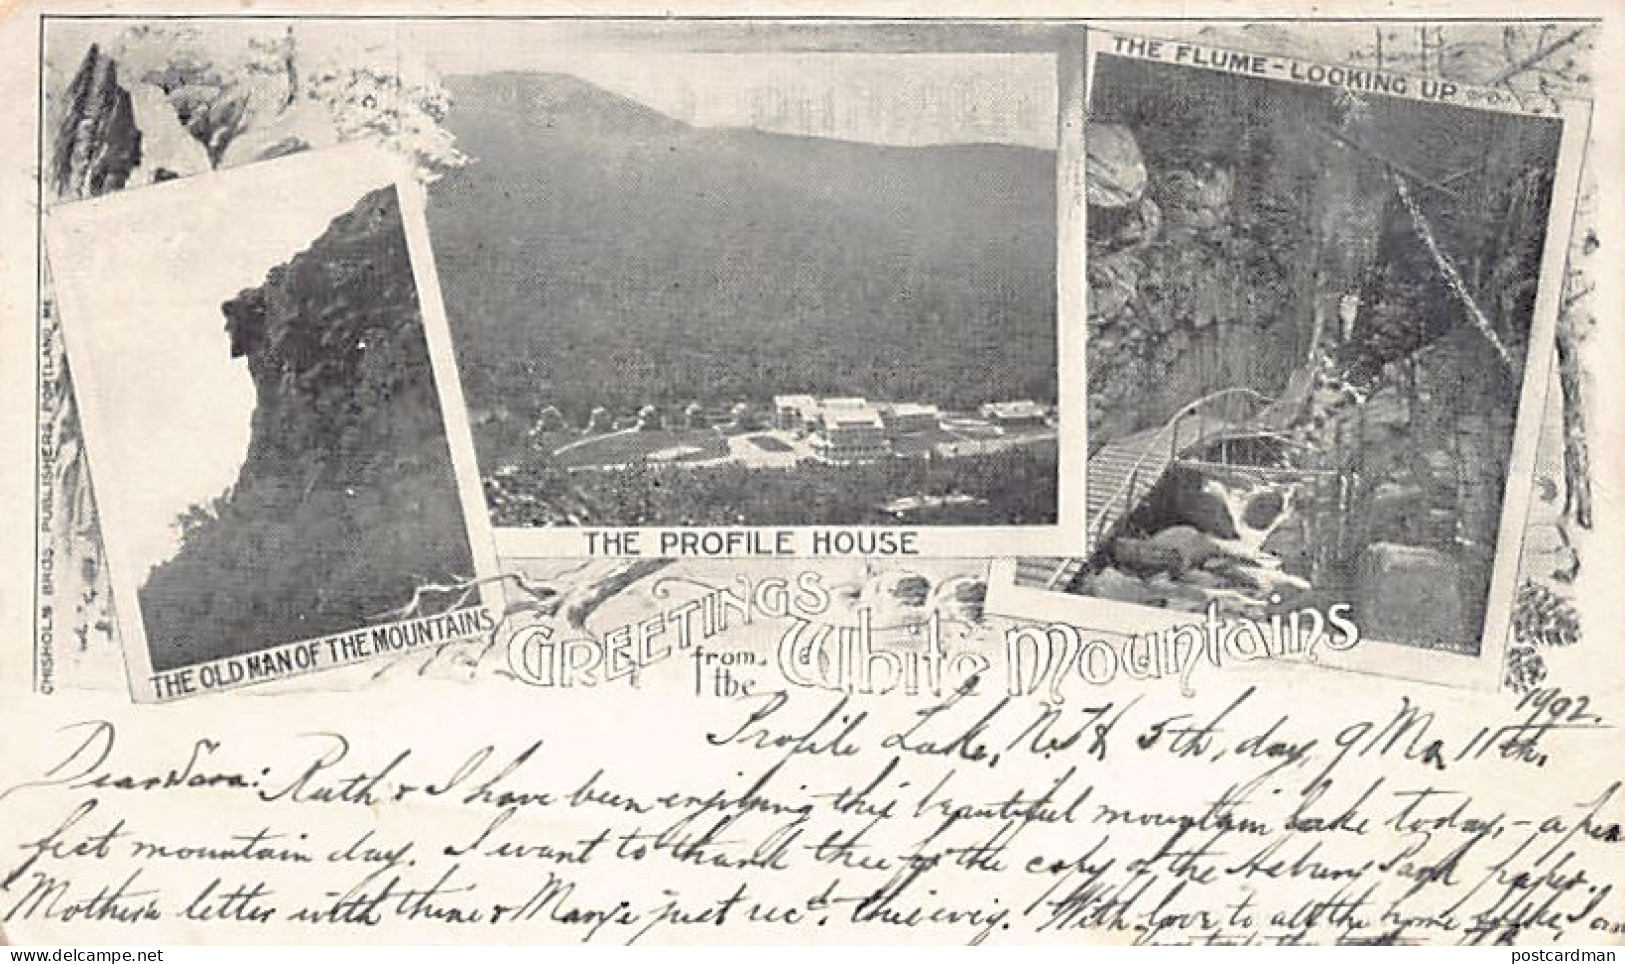 THE FLUME - LOOKING UP
CHISHOLM BROS. PUBLISHERS, PORTLAND, ME.
THE PROFILE HOUSE
THE OLD MAN OF THE MOUNTAINS
GREETINGS
from the White Mountains
1902.
Profile Lake, N.H. 5th, day, 9 Mo 11th.
Dear Sara: Ruth & I have been enjoying this beautiful mountain lake today, - a per
fect mountain day. I want to thank thee for the copy of the Asbury Park paper.
Mother's letter with thine & Mary's just rec'd. this evg. With love to all the home folks, I am
delcampe.net
postcardman